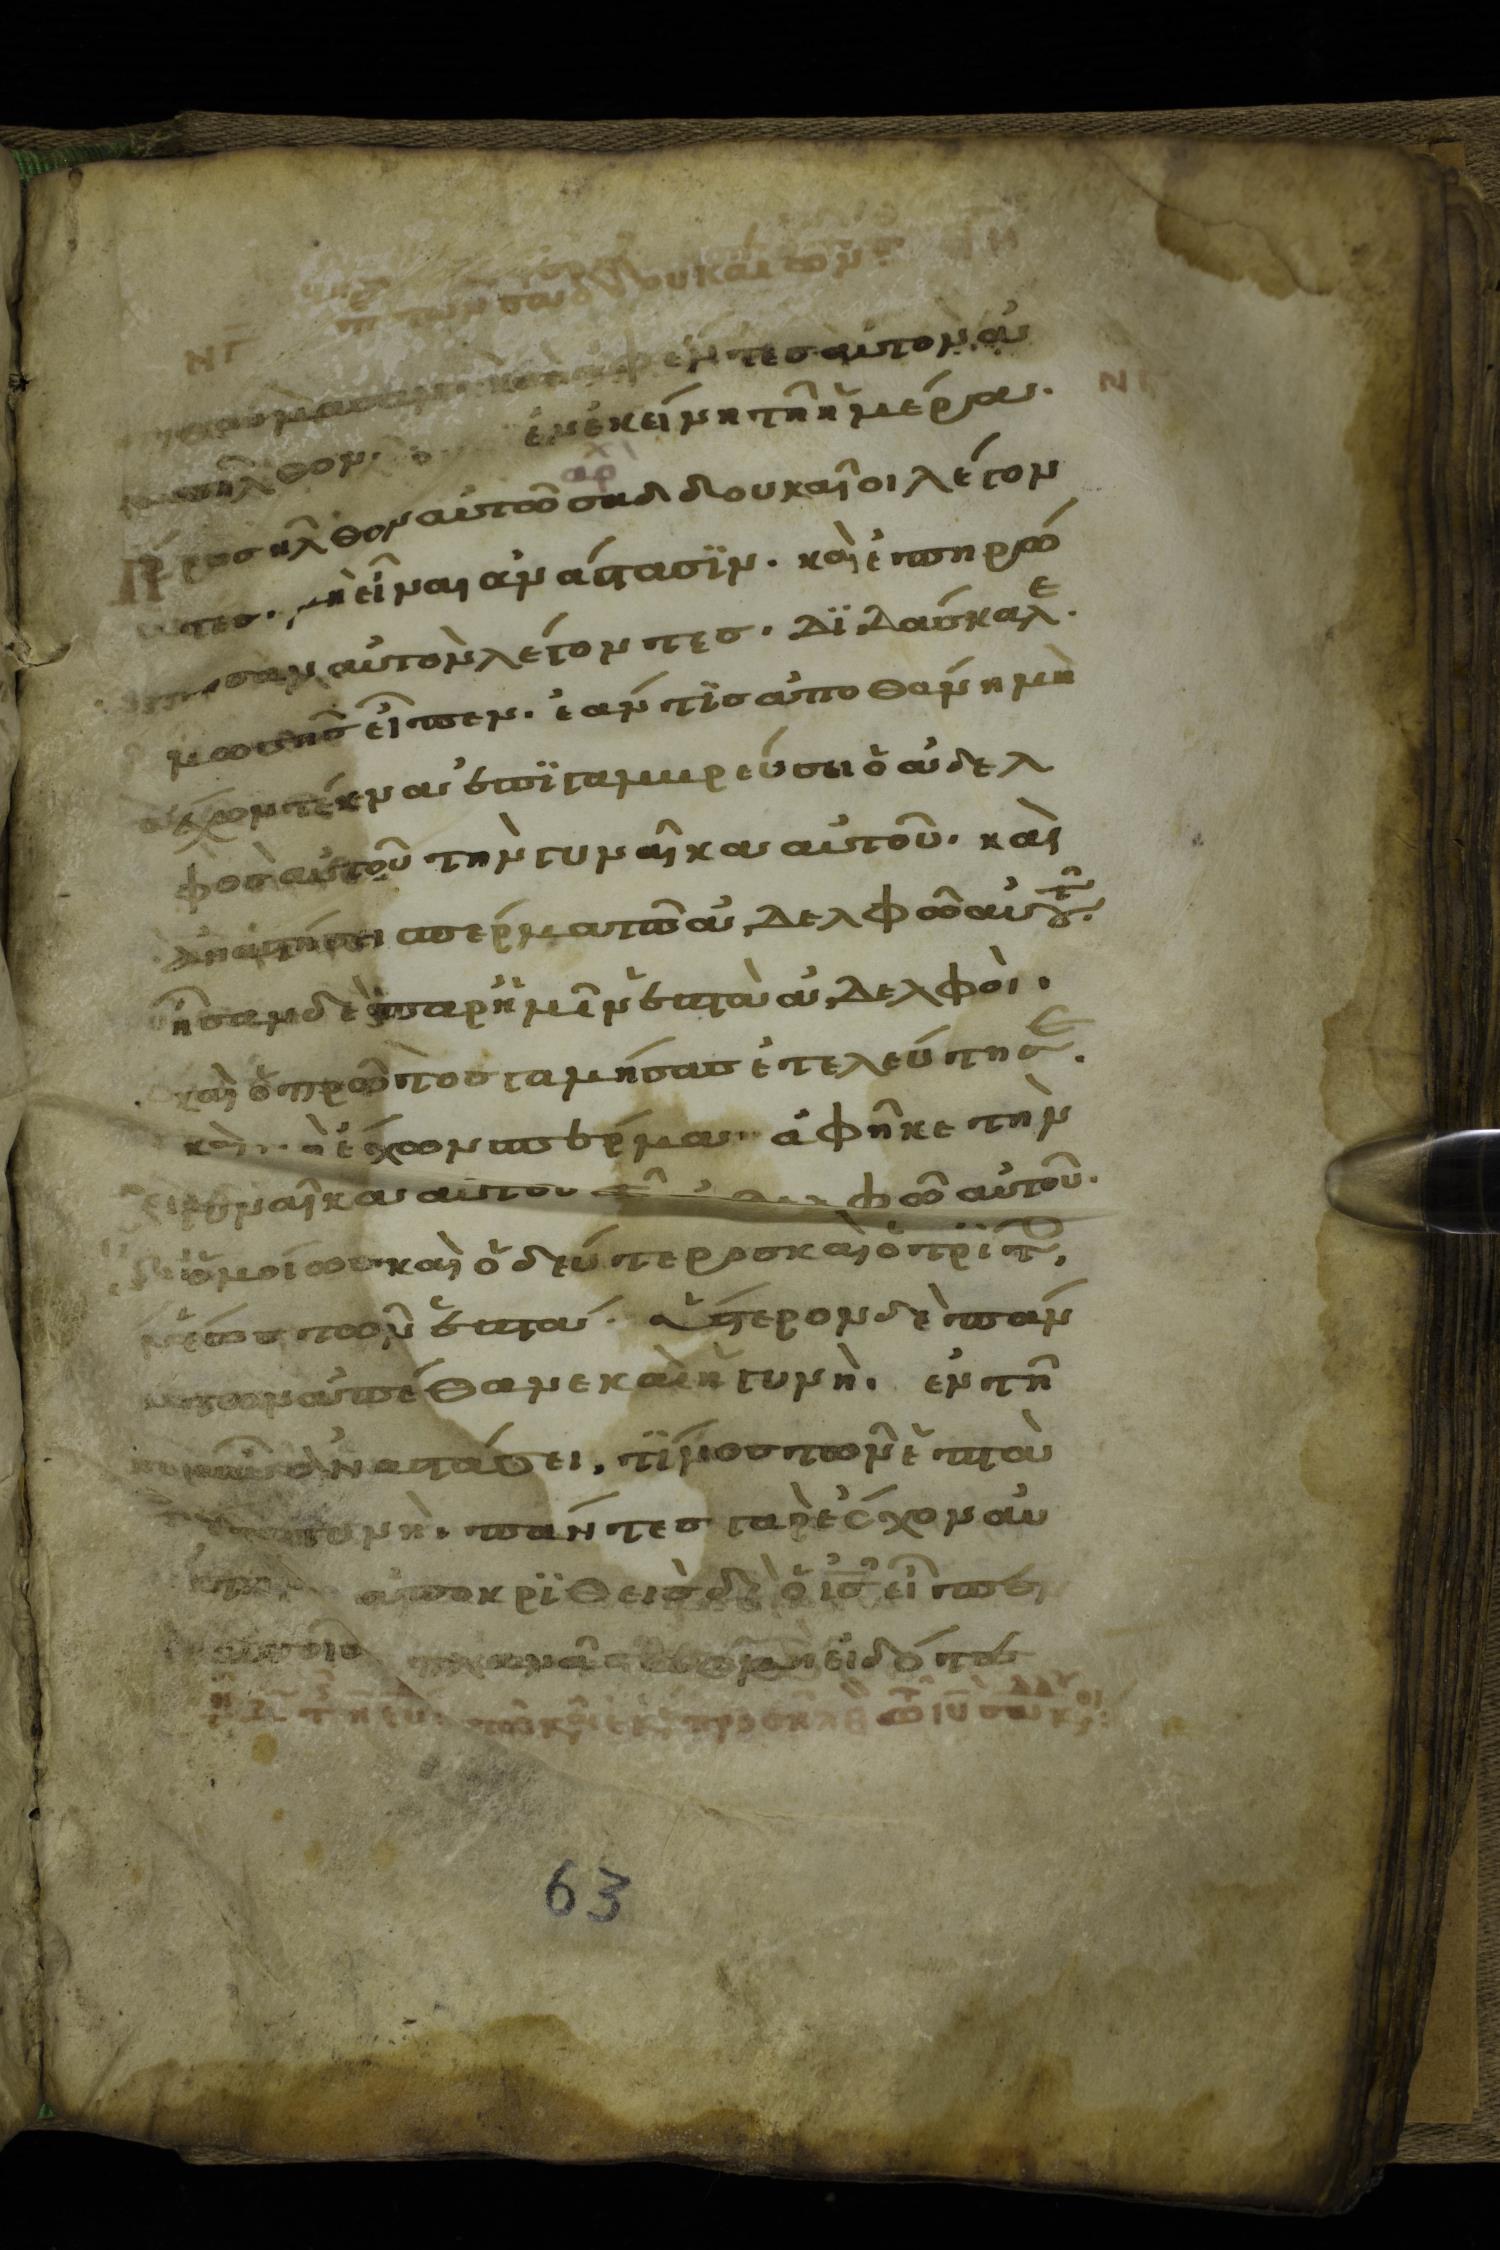 ΝΓ
τῶν σαδδουκαίων
ἐθαύμασαν· καὶ ἀφέντες αὐτὸν ἀ
πῆλθον. ἐν ἐκείνη τῆ ἡμέρα.
ΝΓ
ἀρχ
Προσῆλθον αὐτῶ σαδδουκαῖοι λέγον
τες. μὴ εἶναι ἀνάστασϊν. καὶ ἐπηρώ
τησαν αὐτὸν λέγοντες. Δϊδάσκαλε.
μωσῆς εἶπεν. ἐάν τϊς ἀποθάνη μὴ
ἔχων τέκνα ἐπϊγαμβρεύσει ὁ ἀδελ
φὸς αὐτοῦ τὴν γυναῖκα αὐτοῦ. καὶ
ἀναστήσει σπέρμα τῶ ἀδελφῶ αὐτοῦ.
ἦσαν δὲ παρ ἡμῖν ἑπτὰ ἀδελφοὶ.
καὶ ὁ πρῶτος γαμήσας ἐτελεύτησε.
καὶ μὴ ἔχων σπέρμα. ἀφῆκε τὴν
γυναῖκα αὐτοῦ τῶ ἀδελφῶ αὐτοῦ.
ὁμοίως καὶ ὁ δεύτερος καὶ ὁ τρϊτο,
ἕως τῶν ἑπτά. ὕστερον δὲ πάν
των ἀπέθανε καὶ ἡ γυνὴ. ἐν τῆ
οὖν ἀναστάσει, τϊνος τῶν ἑπτὰ
ἔσται γυνὴ. πάντες γὰρ ἔσχον αὐ
τὴν ἀποκρϊθεὶς δὲ ὁ ις εἶπεν
αὐτοῖς πλανᾶσθε μὴ εἰδότες
63